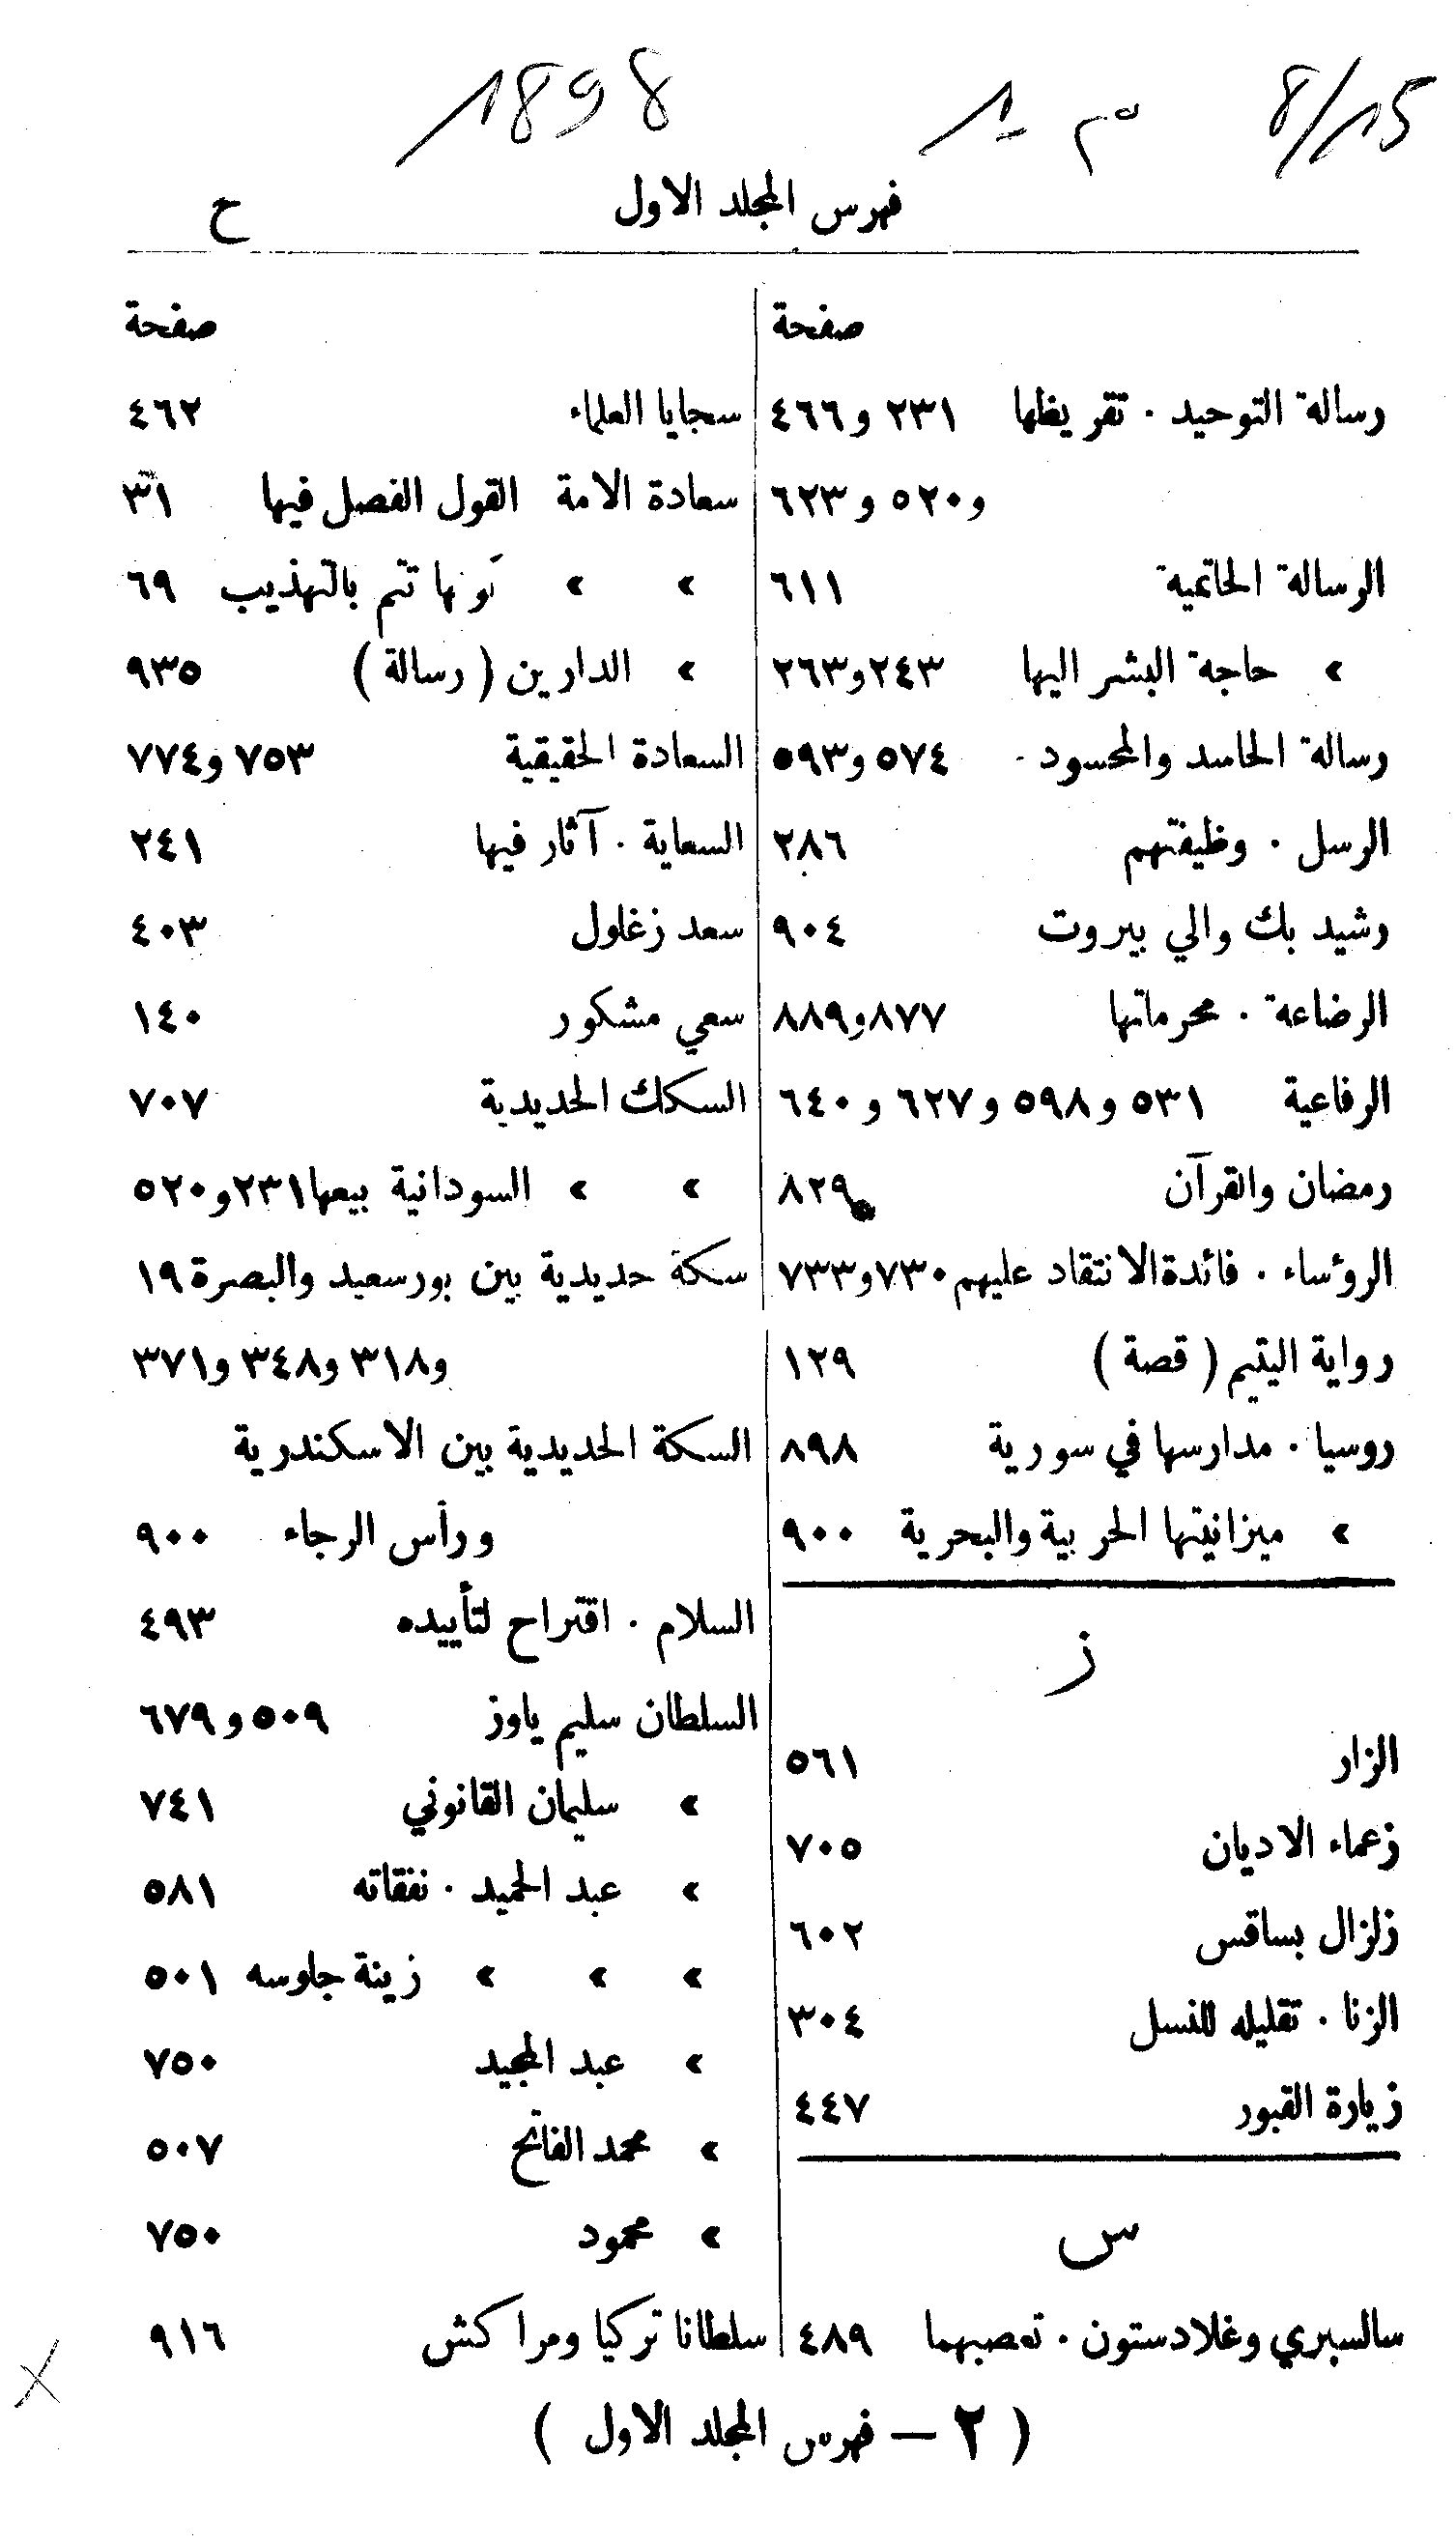 1898 م 1 8/15
فهرس المجلد الاول ح
صفحة
رسالة التوحيد . تقريظها ٢٣١ و٤٦٦
و٥٢٠ و٦٢٣
الرسالة الخاتمية ٦١١
» حاجة البشر اليها ٢٤٣و٢٦٣
رسالة الحاسد والمحسود ٥٧٤ و٥٩٣
الرسل . وظيفتهم ٢٨٦
رشيد بك والي بيروت ٩٠٤
الرضاعة . محرماتها ٨٧٧و٨٨٩
الرفاعية ٥٣١ و٥٩٨ و٦٢٧ و٦٤٠
رمضان والقرآن ٨٢٩
الرؤساء . فائدة الانتقاد عليهم ٧٣٠و٧٣٣
رواية اليتيم ( قصة ) ١٢٩
روسيا . مدارسها في سورية ٨٩٨
» ميزانيتها الحربية والبحرية ٩٠٠
ز
الزار ٥٦١
زعماء الاديان ٧٠٥
زلزال بساقس ٦٠٢
الزنا . تقليله للنسل ٣٠٤
زيارة القبور ٤٤٧
س
سالسبري وغلادستون . تعصبهما ٤٨٩
صفحة
سجايا العلماء ٤٦٢
سعادة الامة القول الفصل فيها ٣١
» » كونها تتم بالتهذيب ٦٩
» الدارين ( رسالة ) ٩٣٥
السعادة الحقيقية ٧٥٣ و٧٧٤
السعاية . آثار فيها ٢٤١
سعد زغلول ٤٠٣
سعي مشكور ١٤٠
السكك الحديدية ٧٠٧
» » السودانية بيعها ٢٣١و٥٢٠
سكة حديدية بين بورسعيد والبصرة ١٩
و٣١٨ و٣٤٨ و٣٧١
السكة الحديدية بين الاسكندرية
ورأس الرجاء ٩٠٠
السلام . اقتراح لتأييده ٤٩٣
السلطان سليم ياوز ٥٠٩ و٦٧٩
» سليمان القانوني ٧٤١
» عبد الحميد . نفقاته ٥٨١
» » » زينة جلوسه ٥٠١
» عبد المجيد ٧٥٠
» محمد الفاتح ٥٠٧
» محمود ٧٥٠
سلطانا تركيا ومراكش ٩١٦
( ٢ — فهرس المجلد الاول )